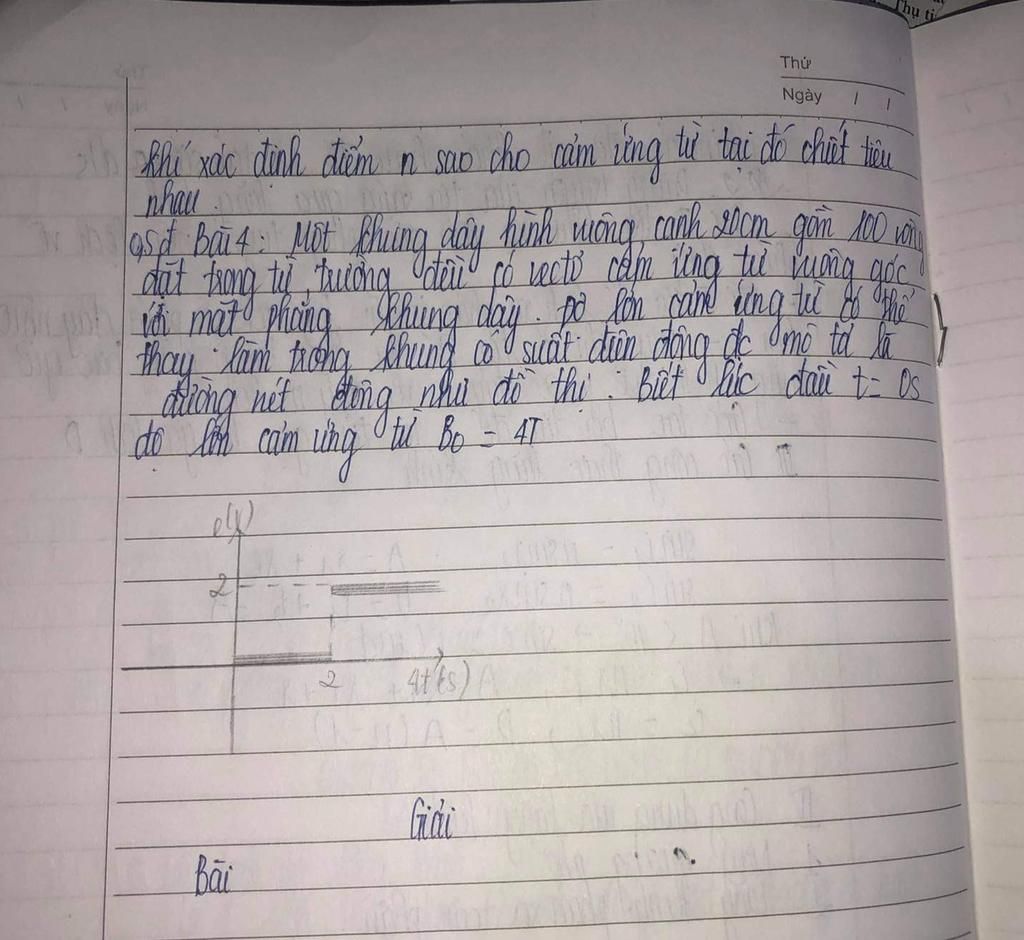 Thụ ti
Thứ
Ngày / /
khí xác định điểm n sao cho cảm ứng từ tại đó chiết tiêu
nhau.
0,5đ Bài 4: Một khung dây hình vuông, cạnh 20cm gồm 100 vòng
đặt trong từ trường đều có vectơ cảm ứng từ vuông góc
với mặt phẳng khung dây. Độ lớn cảm ứng từ có thể
thay làm trong khung có suất điện động đc mô tả là
đường nét đồng như đồ thị. Biết lúc đầu t = 0s
độ lớn cảm ứng từ B0 = 4T
e(V)
2
2 4t(s)
Giải
Bài